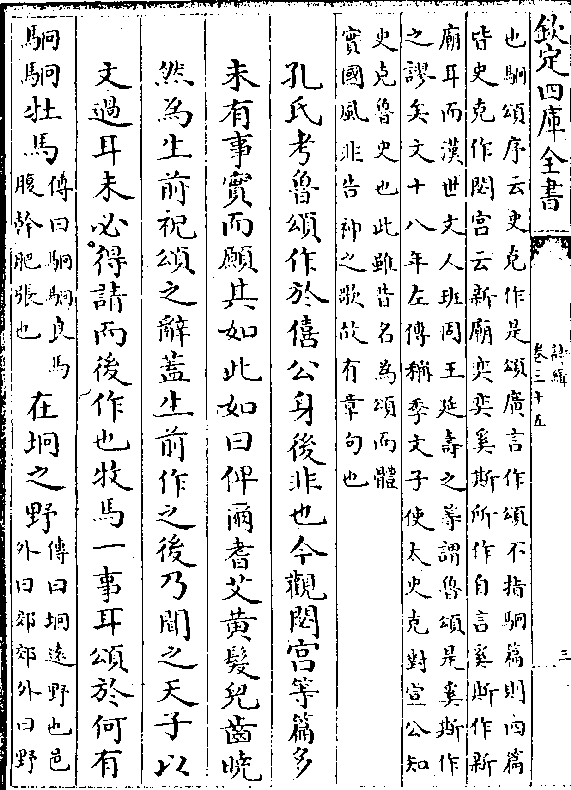 欽定四庫全書
詩緝
卷三十五
三
也駉頌序云史克作是頌廣言作頌不指駉篇則四篇
皆史克作閟宮云新廟奕奕奚斯所作自言奚斯作新
廟耳而漢世文人班固王延壽之等謂魯頌是奚斯作
之謬矣文十八年左傳稱季文子使太史克對宣公知
史克魯史也此雖皆名為頌而體
實國風非告神之歌故有章句也
孔氏考魯頌作於僖公身後非也今觀閟宮等篇多
未有事實而願其如此如曰俾爾耆艾黃髮兒齒曉
然為生前祝頌之辭蓋生前作之後乃聞之天子以
文過耳未必得請而後作也牧馬一事耳頌於何有
駉駉牡馬傳曰駉駉良馬
腹幹肥張也在坰之野傳曰坰遠野也邑
外曰郊郊外曰野